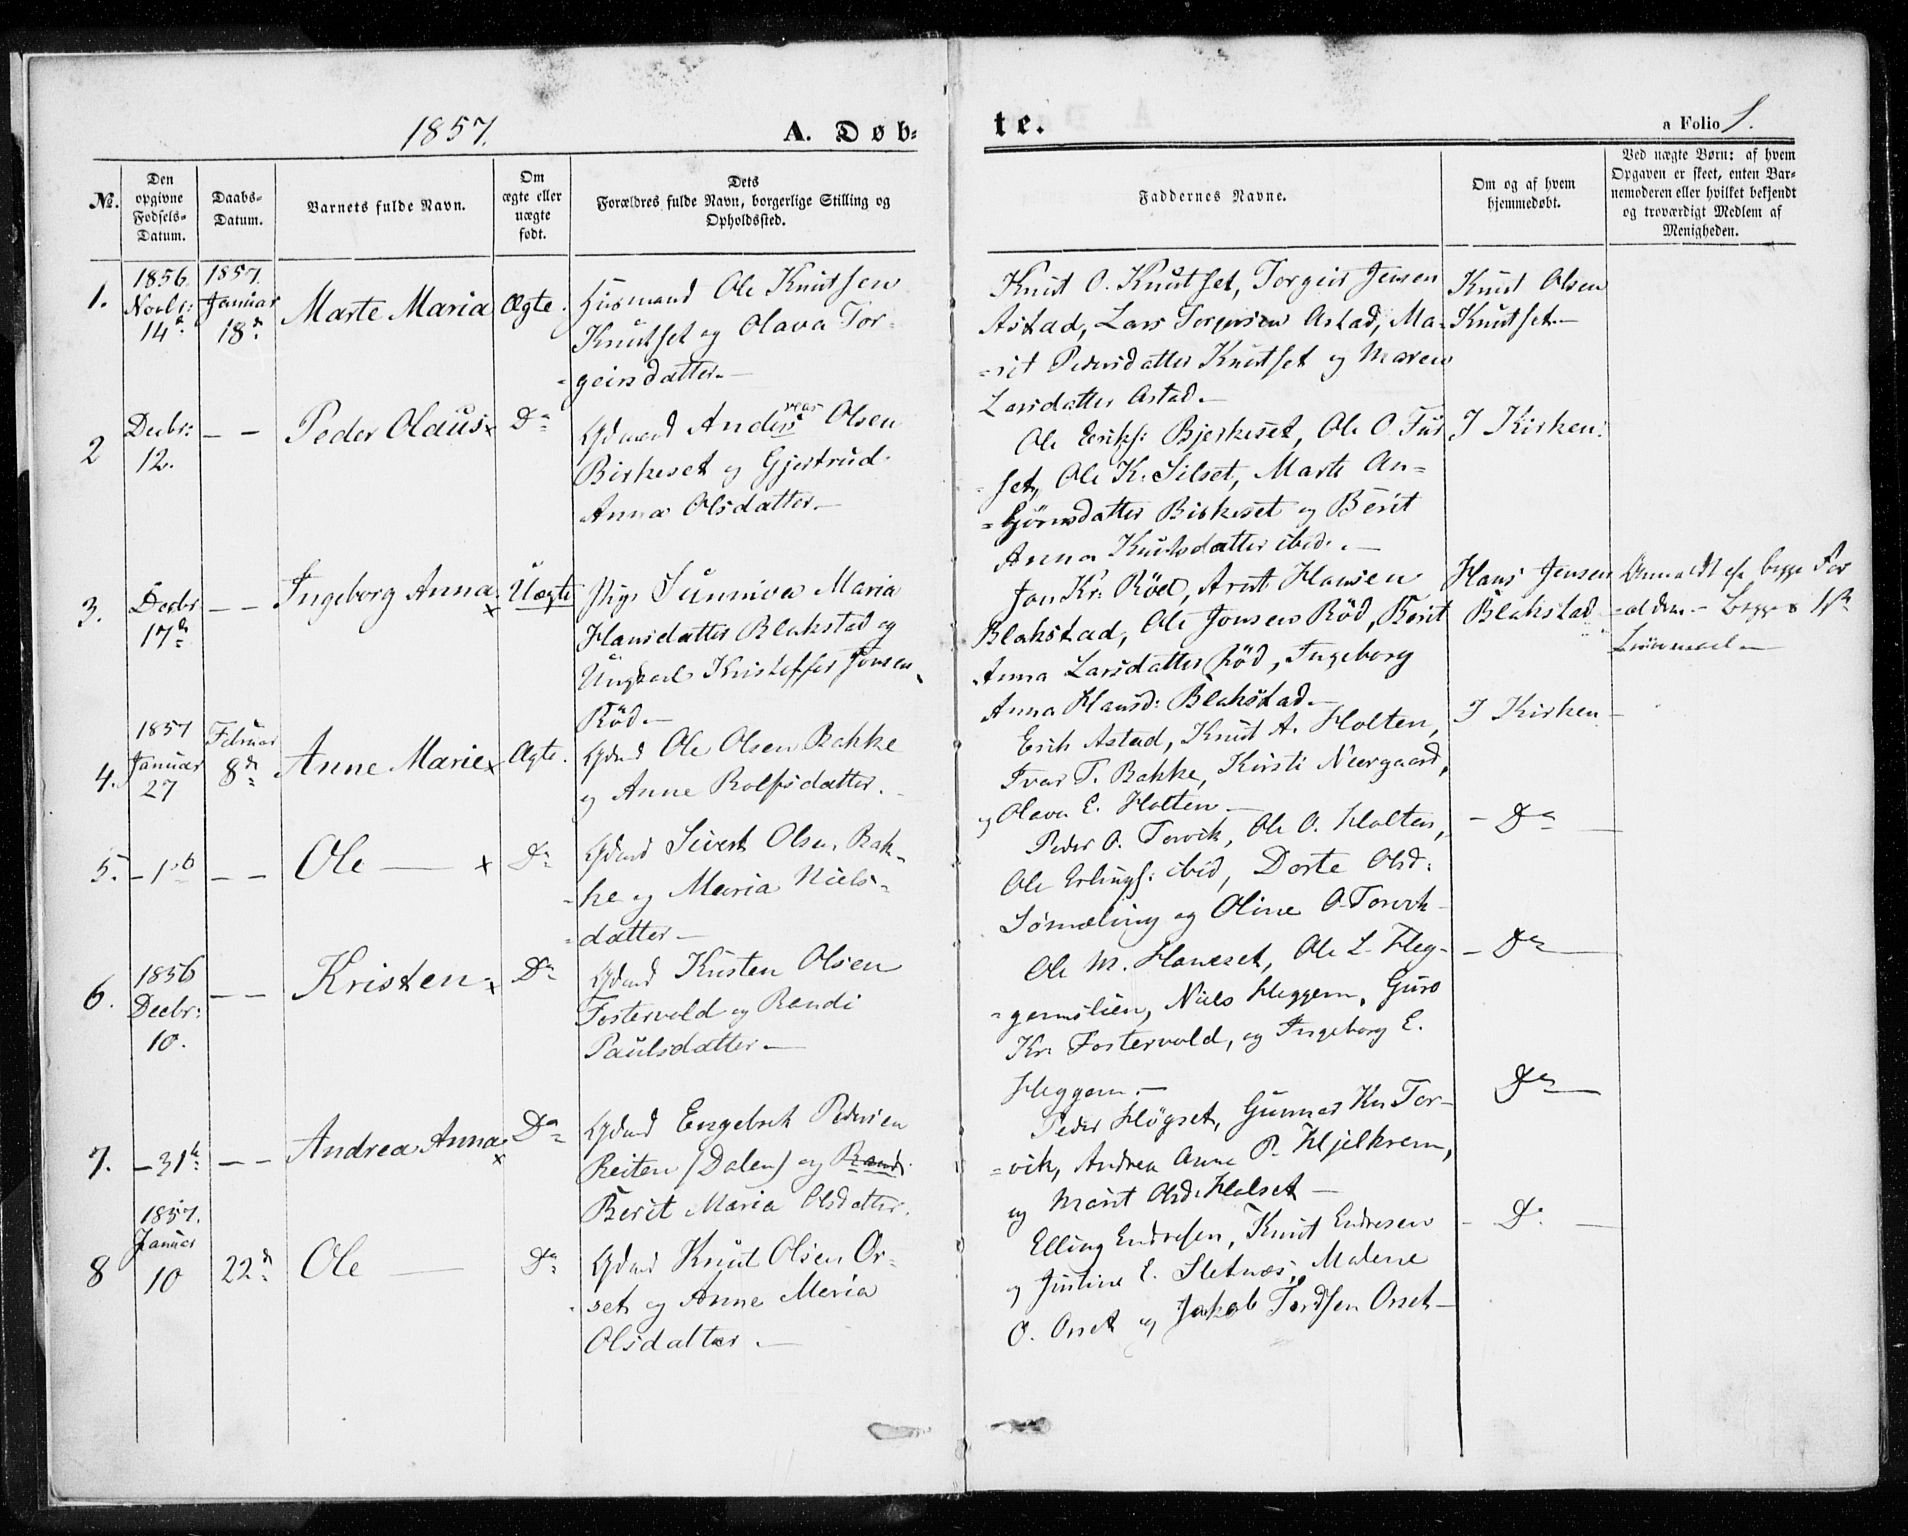 1857.
A. Døb-
te.
a Folio 1.
№.
Den opgivne Fødsels-Datum.
Daabs-Datum.
Barnets fulde Navn.
Om ægte eller uægte født.
Dets Forældres fulde Navn, borgerlige Stilling og Opholdssted.
Faddernes Navne.
Om og af hvem hjemmedøbt.
Ved uægte Børn: af hvem Opgaven er skeet, enten Barnemoderen eller hvilket bekjendt og troværdigt Medlem af Menigheden.
1.
1856
Novbr:
14de
1857.
Januar
18de
Marte Maria
Ægte.
Husmand Ole Knutsen
Knutset og Olava Tor-
-geirsdatter.-
Knut O. Knutset, Torgeir Jensen
Astad, Lars Torgersen Astad, Ma-
-rit Pedersdatter Knutset og Maren
Larsdatter Astad.-
Knut Olsen
Knutset.-
2
Decbr:
12.
- -
Peder Olaus x
Do
Gdmand Andreas Olsen
Birkeset og Gjertrud
Anna Olsdatter.-
Ole Eriks: Bjerkeset, Ole O. Fur-
set, Ole K. Silset, Marte An-
-bjørnsdatter Birkeset og Berit
Anna Knutsdatter ibid.-
I Kirken.
3.
Decbr
17de
- -
Ingeborg Anna. x
Uægte
Pige Sunniva Maria
Hansdatter Blakstad og
Ungkarl Kristoffer Jonsen
Röd.-
Jon Kr: Röd, Arnt Hansen
Blakstad, Ole Jonsen Röd, Berit
Anna Larsdatter Röd, Ingeborg
Anna Hansd: Blakstad.-
Hans Jensen
Blakstad
Anmeldt af begge For
-ældre.- Begges 1ste
Leiermaal.-
4.
1857
Januar
27
Februar
8de
Anne Marie x
Ægte.
Gdmd Ole Olsen Bakke
og Anne Rolfsdatter.
Erik Astad, Knut A. Holten,
Ivar T. Bakke, Kirsti Neergaard,
og Olava E. Holten.-
I Kirken-
5.
-1ste
- -
Ole - x
Do
Gdmd Sivert Olsen Bak-
-ke og Maria Niels-
-datter-
Peder O. Torvik, Ole O. Holten,
Ole Erlings: ibid, Dorte Olsd:
Sørnæling og Oline O. Torvik-
- Do -
6.
1856
Decbr:
10.
- -
Kristen x
Do
Gdmd Kristen Olsen
Fostervold og Randi
Paulsdatter-
Ole M. Haneset, Ole L. Heg-
-gemslien, Niels Heggem, Guro
Kr. Fostervold, og Ingeborg E.
Heggem.-
- Do -
7.
-31te
- -
Andrea Anna x
Do
Gdmd Engebret Pedersen
Reiten (Dalen) og Randi
Berit Maria Olsdatter.
Peder Høgset, Gunnar Kn. Tor-
-vik, Andrea Anne P. Hjelkrem,
og Marit Olsd: Halset-
Do -
8
1857.
Januar
10
22de
Ole -
Do
Gdmd Knut Olsen Or-
-set og Anne Maria
Olsdatter.-
Elling Endresen, Knut Endresen
og Justine E. Sletnæs, Malene
O. Orset og Jakob Tordsen Orset-
- Do -